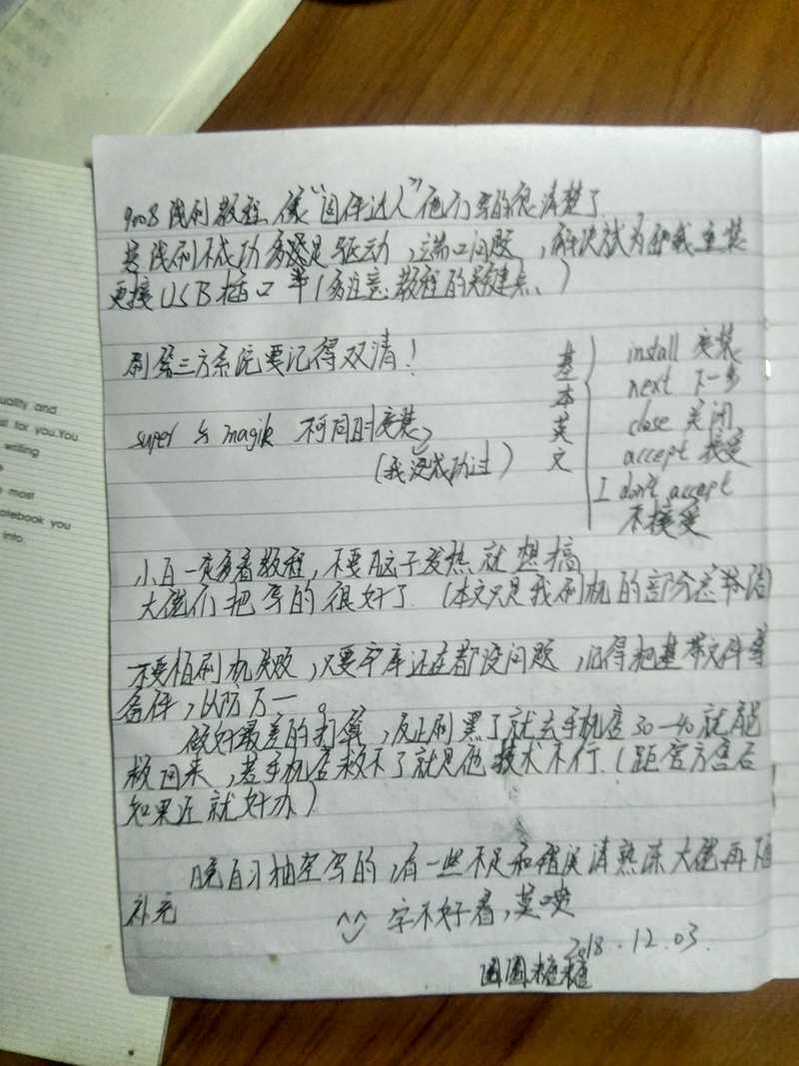 uality and
st for you. You
writing
e
most
otebook you
into
9008线刷教程、像“固件达人”他们写的很清楚了
若线刷不成功多数是驱动，端口问题，解决试为卸载重装
更换USB插口 等(多注意教程的关键点、)
刷第三方系统要记得双清！
super 与 magik 不可同时安装、
(我没成功过)
基本英文
install 安装
next 下一步
close 关闭
accept 接受
I don't accept
不接受
小白一定多看教程，不要脑子发热就想搞
大佬们把写的很好了.(本文只是我刷机的部分总结)
不要怕刷机失败，只要字库还在都没问题，记得把基带文件等
备份，以防万一。
做好最差的打算，反正刷黑了就去手机店30-40就能
救回来，若手机店救不了就是他技术不行.(距官方售后
如果近就好办)
晚自习抽空写的，有一些不足和错误请熟练大佬再下面
补充
^^ 字不好看，莫喷
2018.12.03.
圆圆糖糖